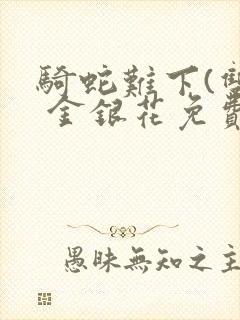 騎蛇難下(雙
金銀花免費
愚昧無知之主